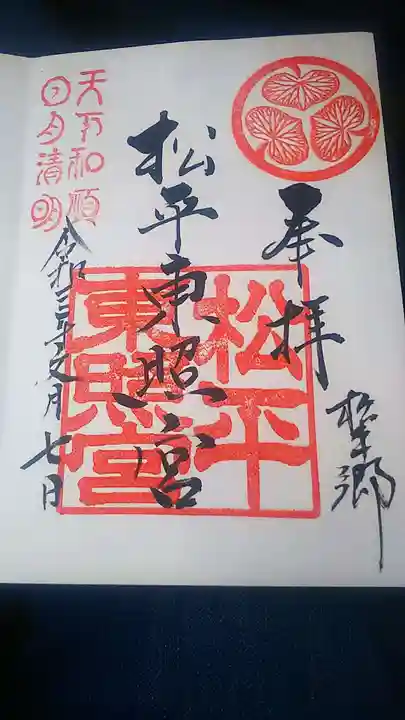 奉拝
松平郷
松平東照宮
松平
東照宮
天下和順
日月清明
令和三年文月七日